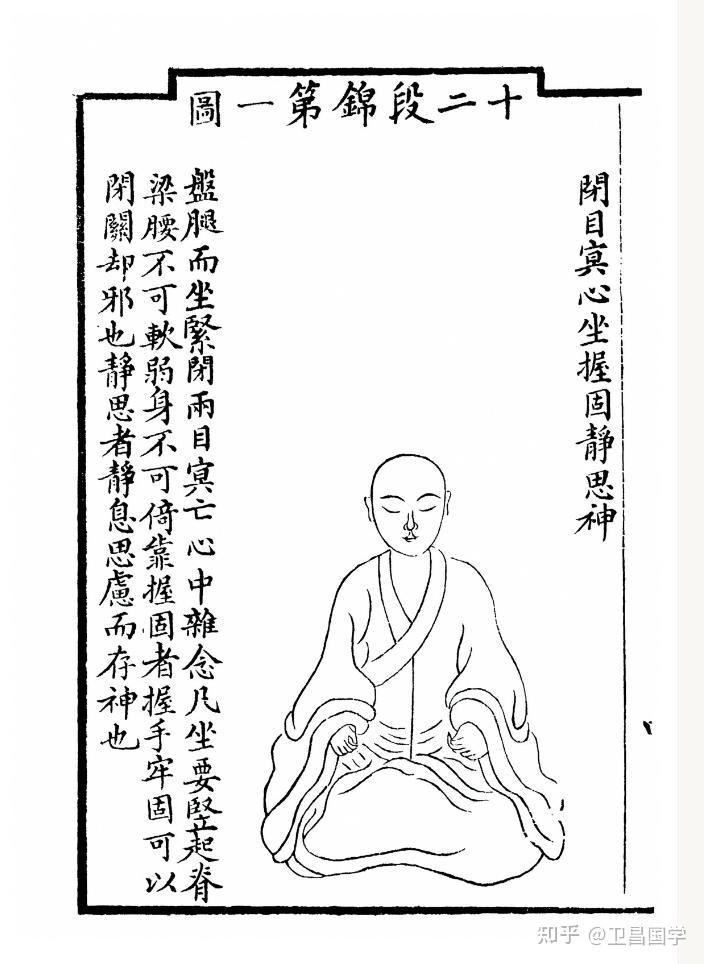 十二段錦第一圖
閉目寞心坐握固靜思神
盤腿而坐緊閉兩目寞亡心中雜念凡坐要竪起脊
梁腰不可軟弱身不可倚靠握固者握手牢固可以
閉關却邪也靜思者靜息思慮而存神也
知乎 @卫昌国学